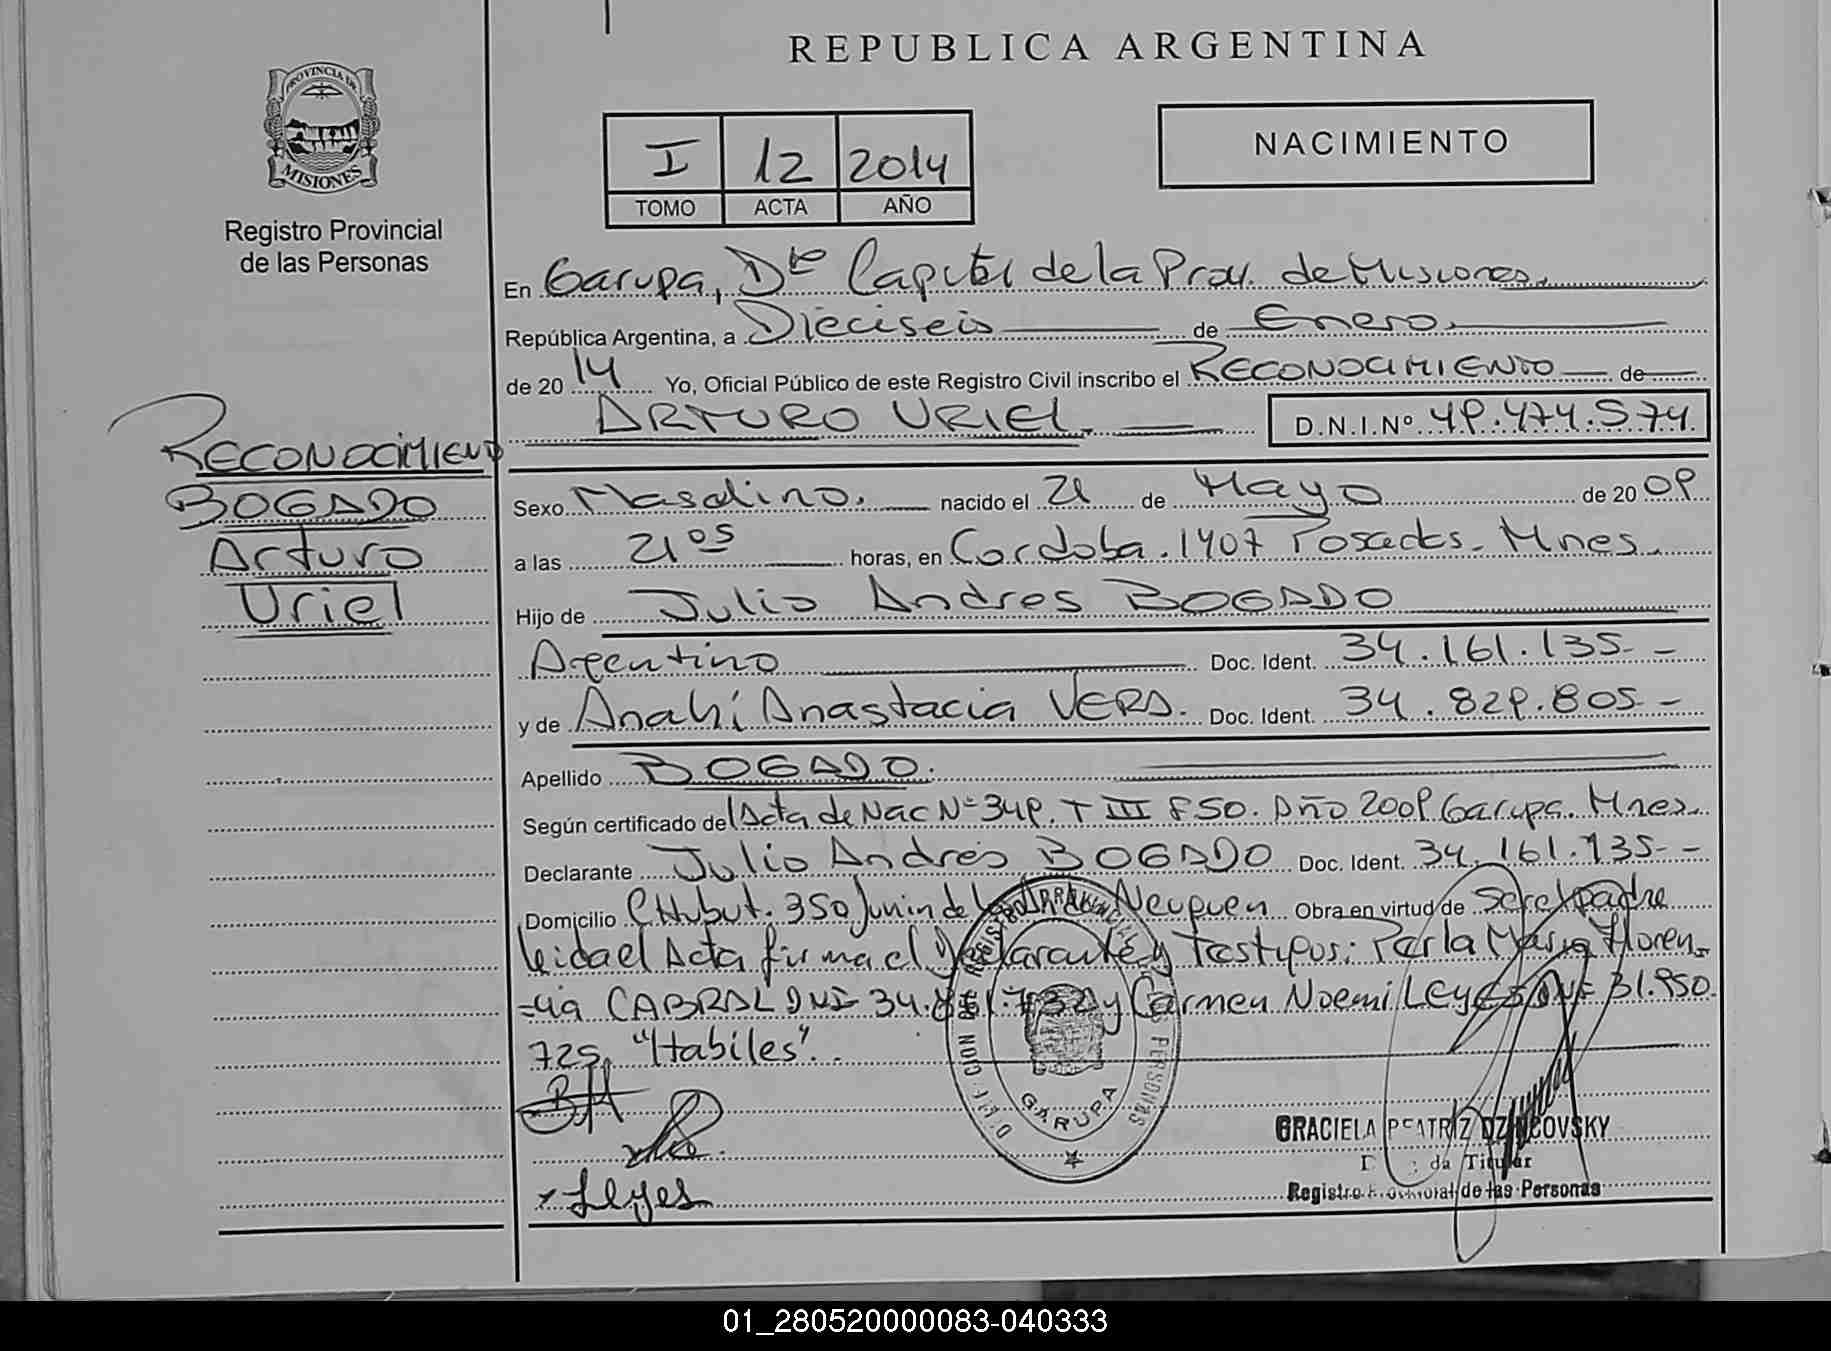 REPUBLICA ARGENTINA
PROVINCIA DE
MISIONES
Registro Provincial
de las Personas
I 12 2014
TOMO ACTA AÑO
NACIMIENTO
En Garupa, Dto Capital de la Prov. de Misiones.
República Argentina, a Dieciseis de Enero.
de 20 14 Yo, Oficial Público de este Registro Civil inscribo el RECONOCIMIENTO de
ARTURO URIEL. D.N.I.Nº 49.474.574
RECONOCIMIENTO
BOGADO
Arturo
Uriel
Sexo Masculino. nacido el 21 de Mayo de 20 09
a las 21 05 horas, en Cordoba. 1407 Posadas. Mnes.
Hijo de Julio Andres BOGADO
Argentino Doc. Ident. 34.161.135-
y de Anahí Anastacia VERA. Doc. Ident. 34.829.805-
Apellido BOGADO.
Según certificado del Acta de Nac Nº 349. T III F 50. Año 2009 Garupa. Mnes.
Declarante Julio Andrés BOGADO Doc. Ident. 34.161.135-
Domicilio CHubut. 350 Junin de los Neuquen Obra en virtud de Ser el padre
Leida el Acta firma el Declarante y Testigos: Parla Maria Floren-
=cia CABRAL DNI= 34. y Carmen Noemi Leyes DNI= 31.950.
725. "Habiles"..
REGISTRO PROVINCIAL DE LAS PERSONAS
GARUPA
Leyes
GRACIELA BEATRIZ
Titular
Registro Provincial de las Personas
01_280520000083-040333